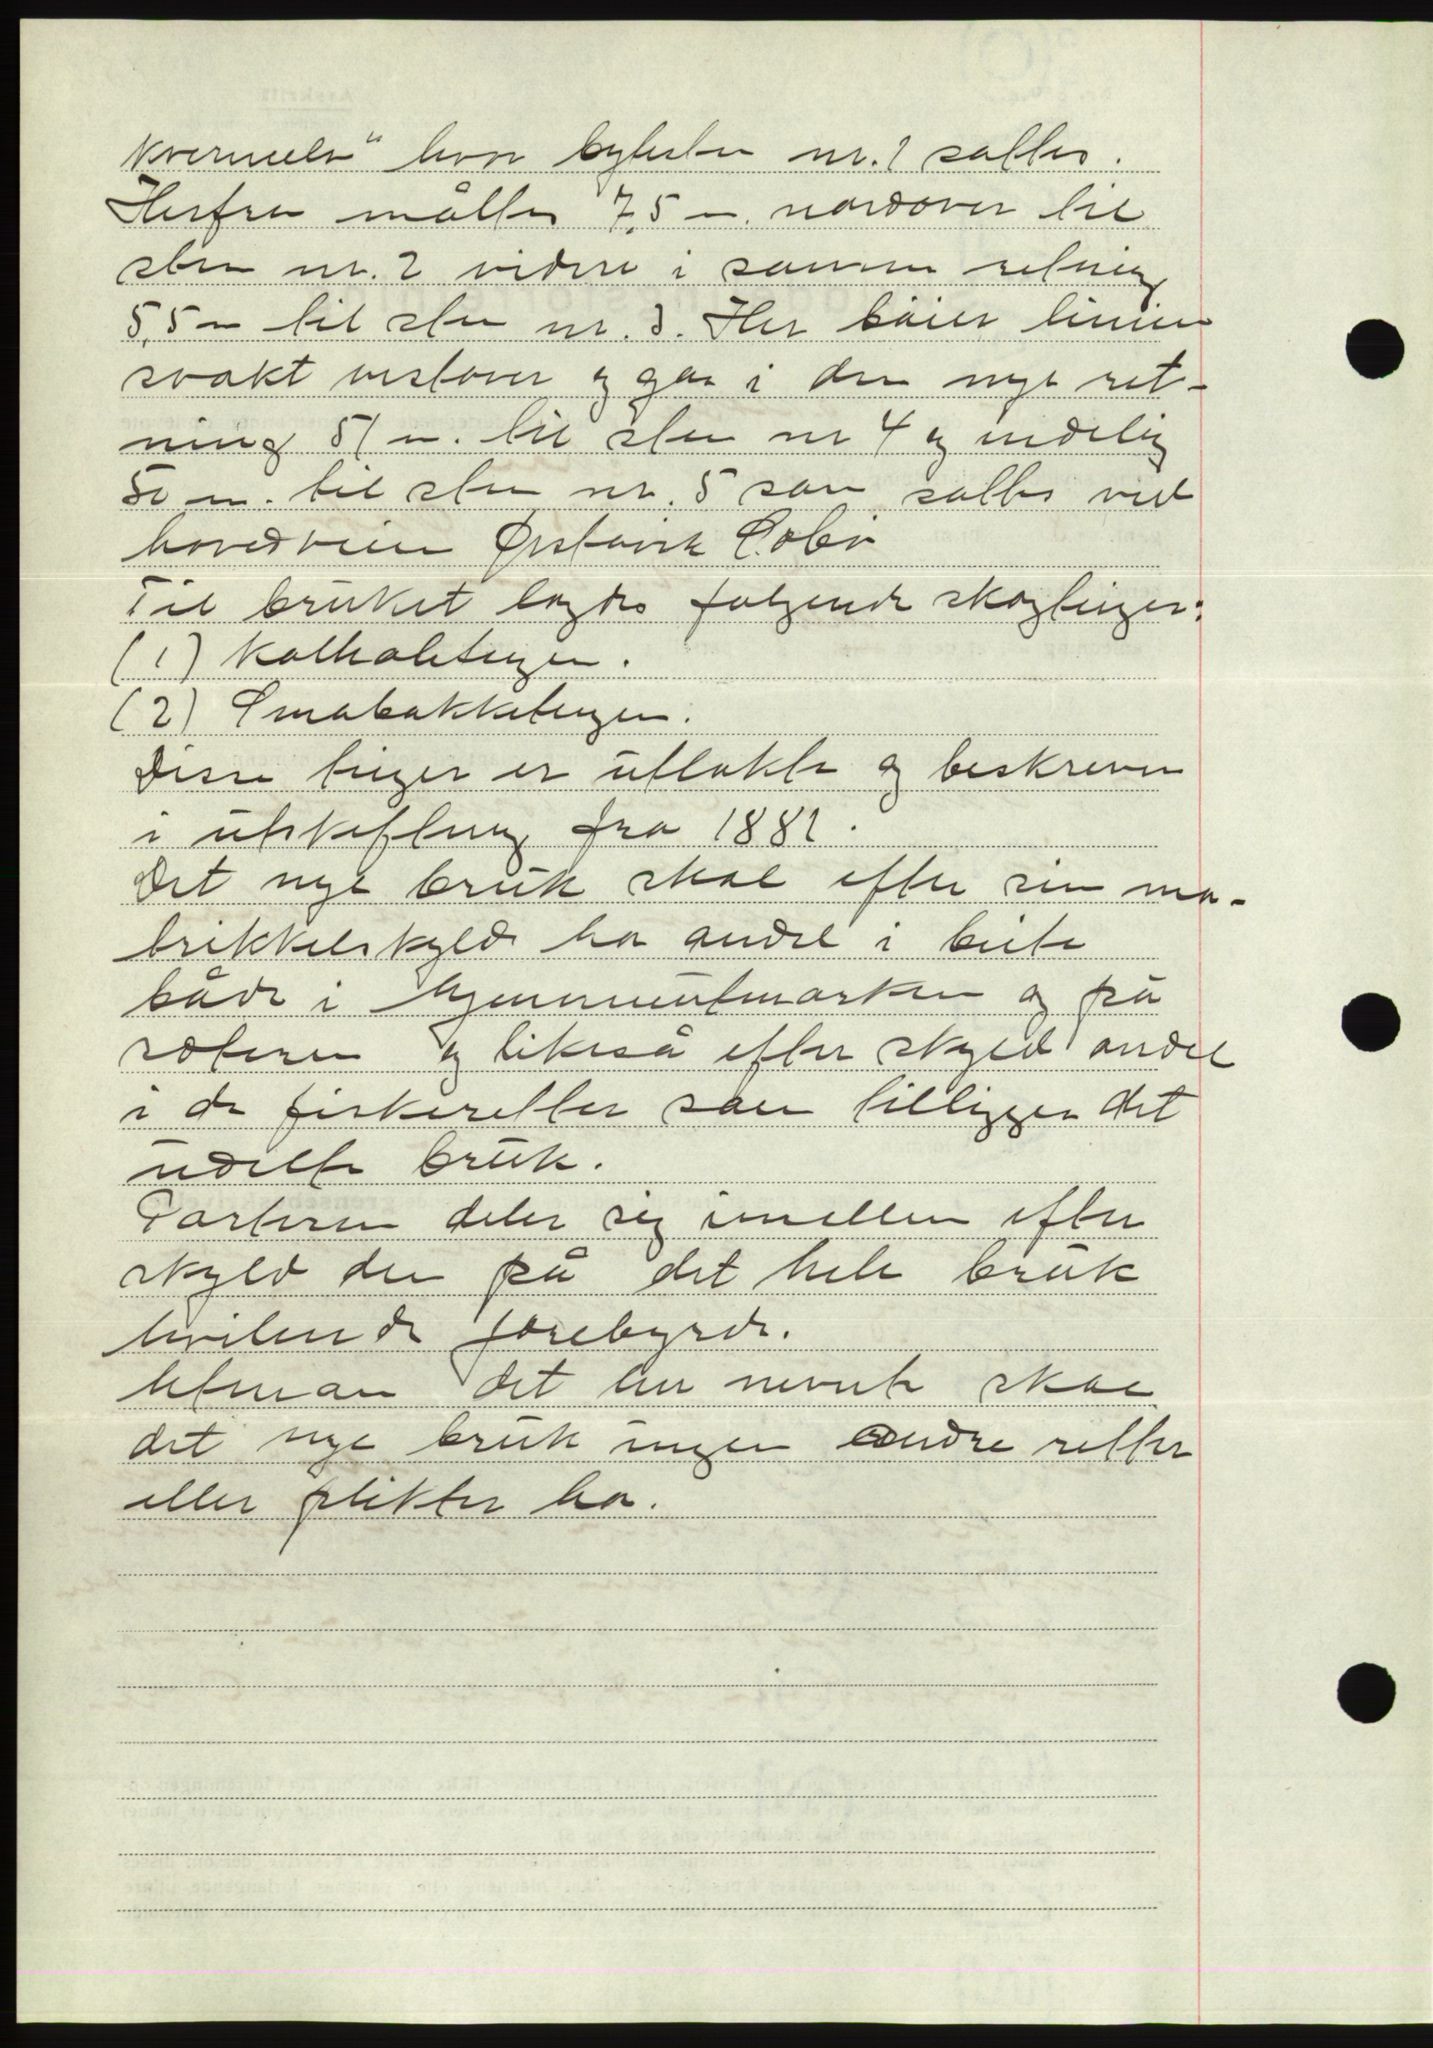 Kvernelv" hvor bytesten nr. 1 settes.
Herfra måltes 7,5 m. nordover til
sten nr. 2 videre i samme retning
5,5 m til sten nr. 3. Her bøier linjen
svakt vestover og går i den nye ret-
ning 51 m. til sten nr 4 og endelig
50 m. til sten nr. 5 som settes ved
hovedveien Ørstavik
Til bruket lagdes følgende skogteiger:
(1) Kolholsteigen.
(2) Småbakketeigen.
Disse teiger er utlakte og beskreven
i utskiftning fra 1881.
Det nye bruk skal efter sin ma-
trikkelskyld ha andel i beite
både i hjemmeutmarken og på
sæteren og likeså efter skyld andel
i de fiskeretter som tilligger det
udelte bruk.
Parterne deler sig imellem efter
skyld den på det hele bruk
hvilende forebyrde.
Utenom det her nevnte skal
det nye bruk ingen andre retter
eller plikter ha.